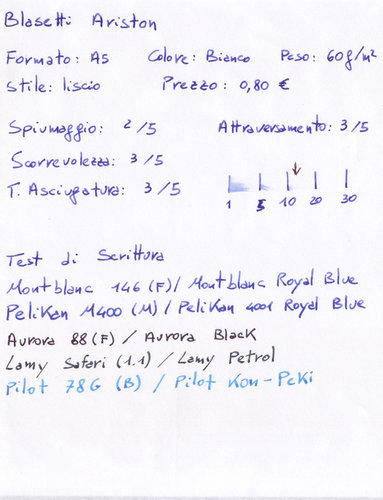 Blasetti Ariston
Formato: A5 Colore: Bianco Peso: 60g/m²
Stile: liscio Prezzo: 0,80 €
Spiumaggio: 2/5 Attraversamento: 3/5
Scorrevolezza: 3/5
T. Asciugatura: 3/5
1 5 10 20 30
Test di Scrittura
Montblanc 146 (F) / Montblanc Royal Blue
Pelikan M400 (M) / Pelikan 4001 Royal Blue
Aurora 88 (F) / Aurora Black
Lamy Safari (1.1) / Lamy Petrol
Pilot 78G (B) / Pilot Kon-Peki